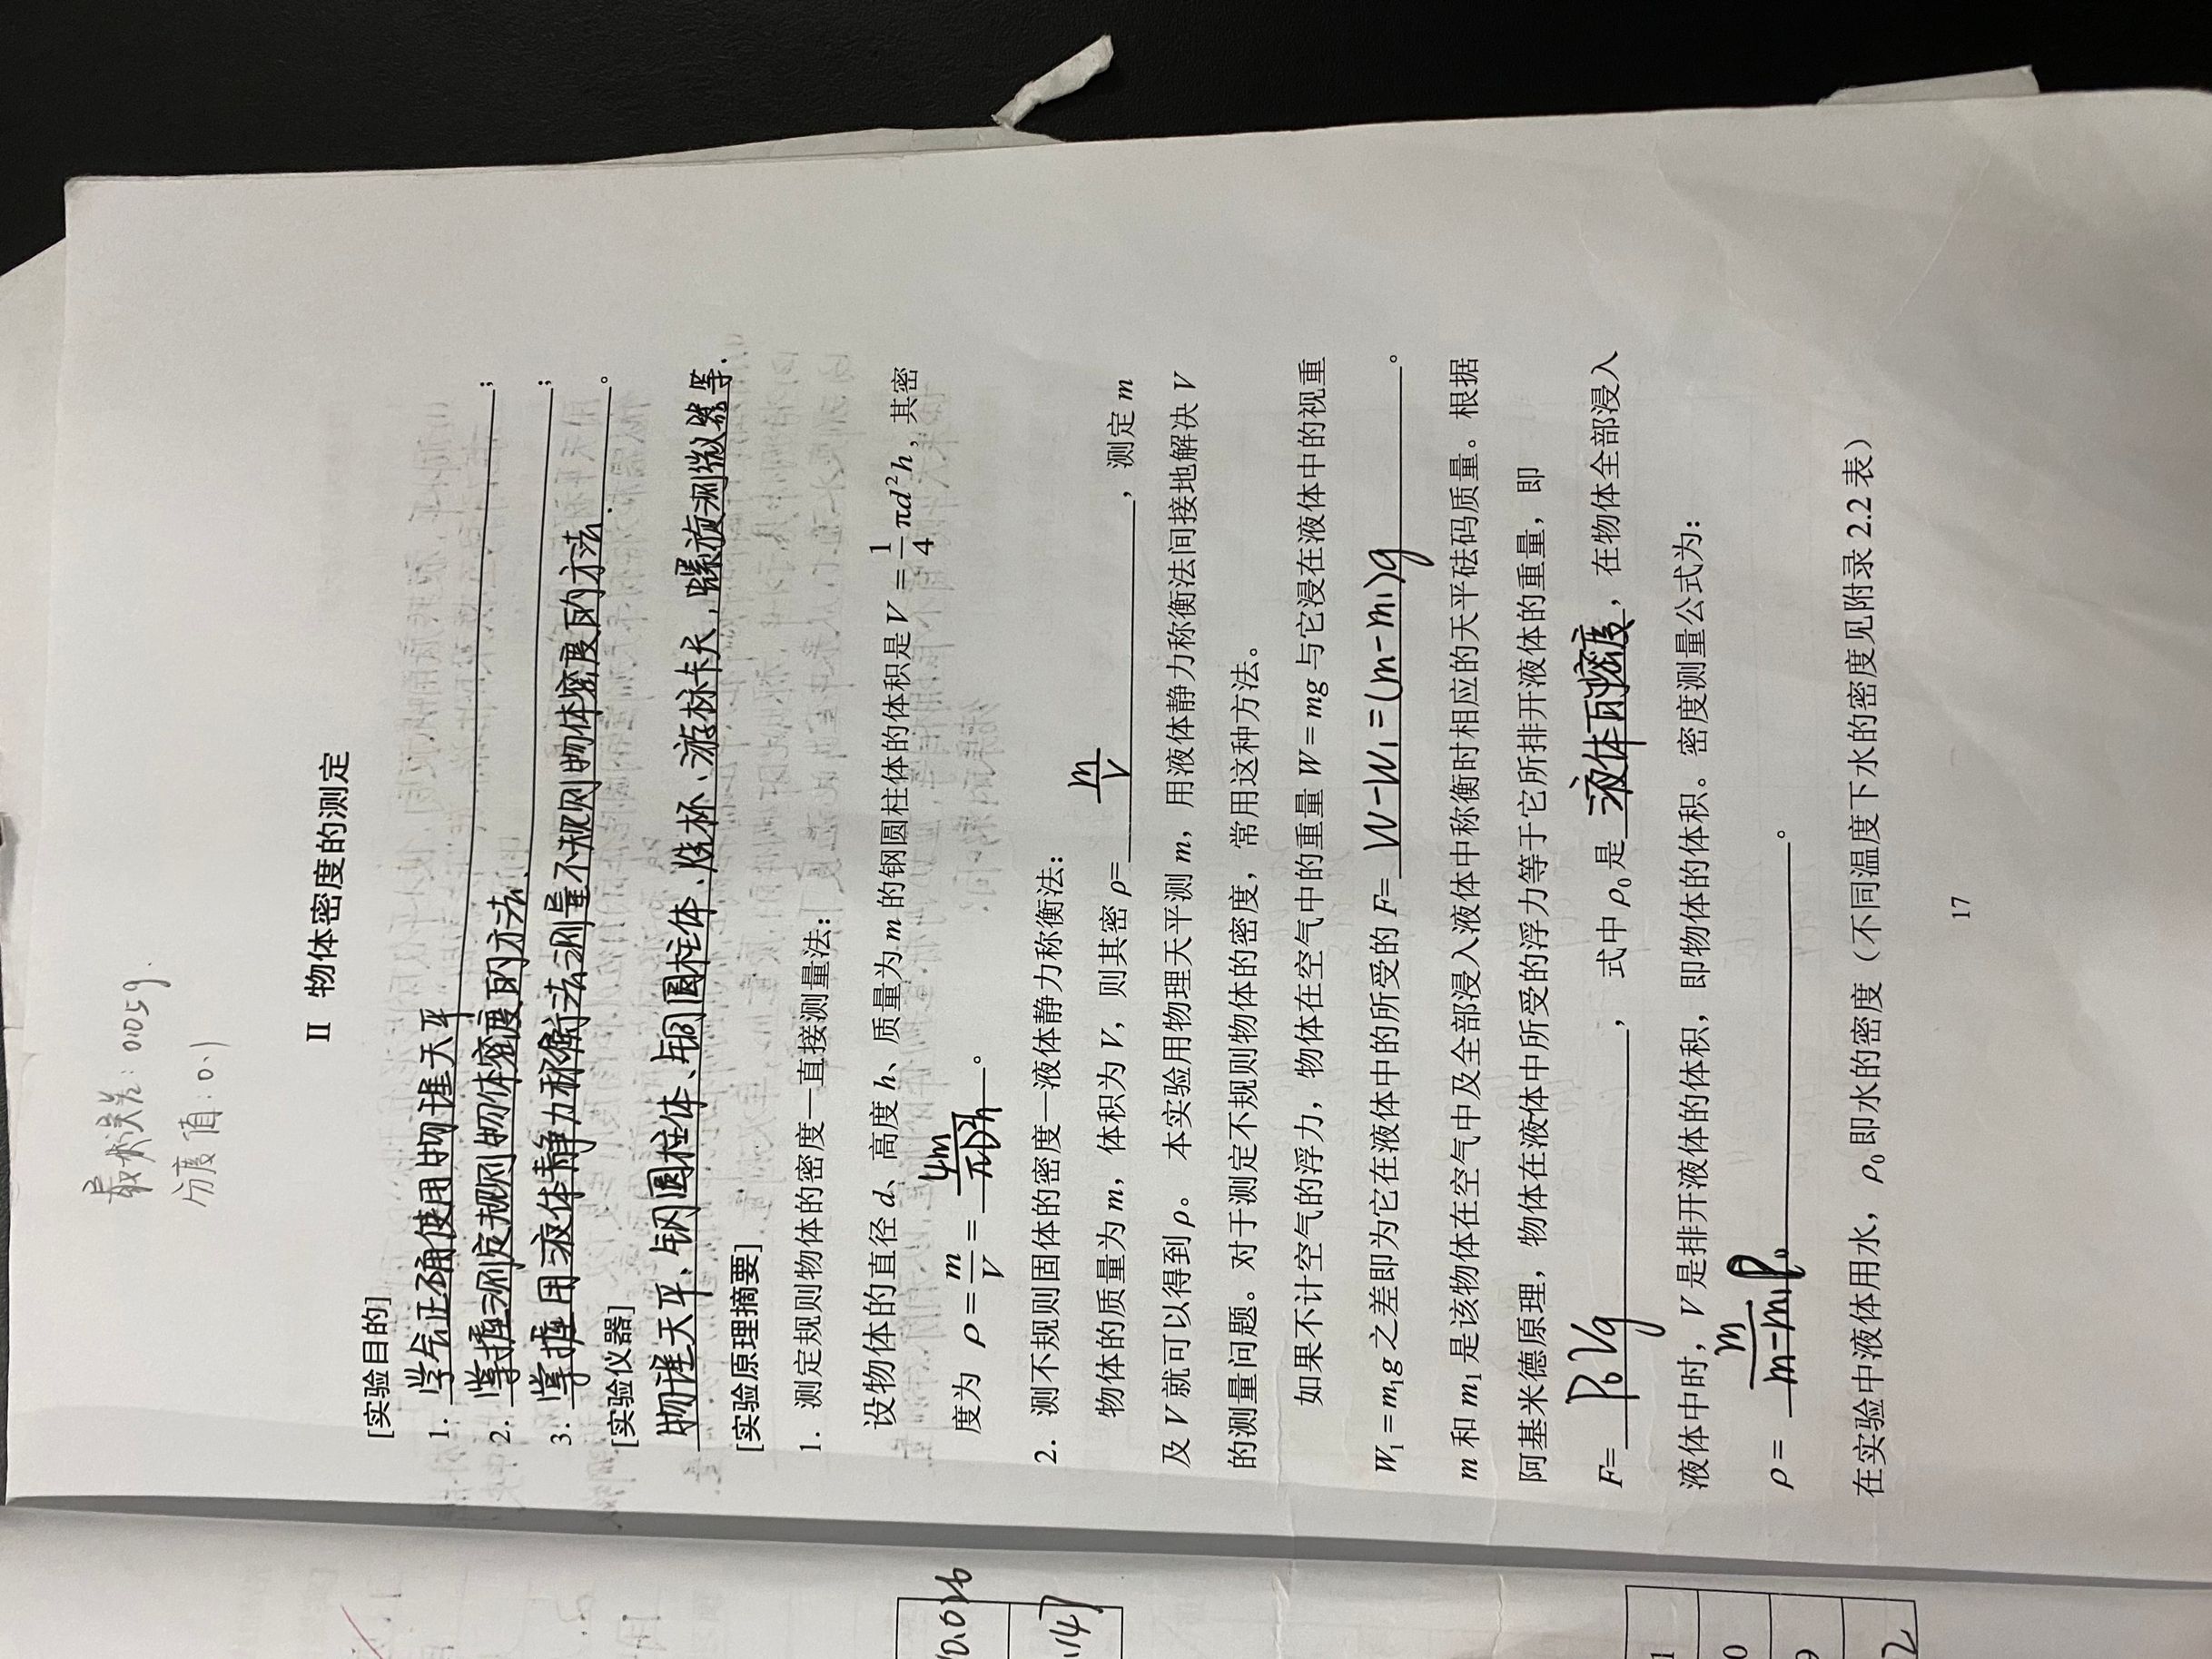 最大误差：0.05g.
分度值：0.1
II 物体密度的测定
[实验目的]
1. 学会正确使用物理天平；
2. 掌握测定规则物体密度的方法.；
3. 掌握用液体静力称衡法测量不规则物体密度的方法.。
[实验仪器]
物理天平、钢圆柱体、铜圆柱体、烧杯、游标卡尺，螺旋测微器等.
[实验原理摘要]
1. 测定规则物体的密度—直接测量法：
设物体的直径 d、高度 h、质量为 m 的钢圆柱体的体积是 V = 1/4 πd²h，其密
度为 ρ = m/V = 4m/πD²h。
2. 测不规则固体的密度—液体静力称衡法：
物体的质量为 m，体积为 V，则其密 ρ= m/V，测定 m
及 V 就可以得到 ρ。 本实验用物理天平测 m，用液体静力称衡法间接地解决 V
的测量问题。对于测定不规则物体的密度，常用这种方法。
如果不计空气的浮力，物体在空气中的重量 W = mg 与它浸在液体中的视重
W₁ = m₁g 之差即为它在液体中的所受的 F= W-W₁=(m-m₁)g。
m 和 m₁ 是该物体在空气中及全部浸入液体中称衡时相应的天平砝码质量。根据
阿基米德原理，物体在液体中所受的浮力等于它所排开液体的重量，即
F= ρ₀Vg， 式中 ρ₀ 是 液体的密度，在物体全部浸入
液体中时，V 是排开液体的体积，即物体的体积。密度测量公式为：
ρ = m/m-m₁ ρ₀。
在实验中液体用水，ρ₀ 即水的密度（不同温度下水的密度见附录 2.2 表）
17